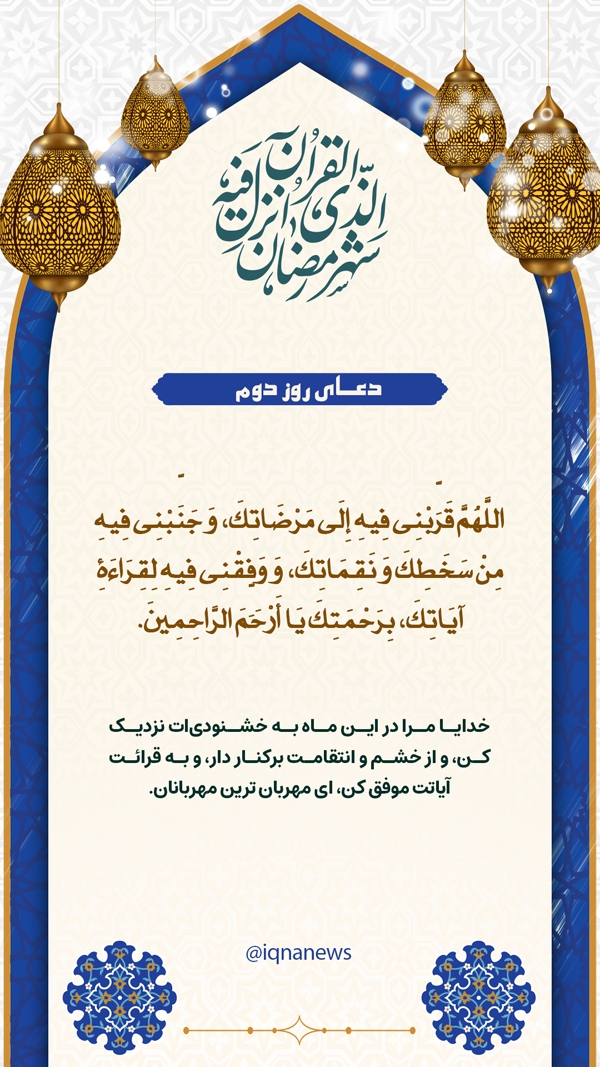 شهر رمضان
الذی انزل فیه
القرآن
دعای روز دوم
اللَّهُمَّ قَرِّبْنِی فِیهِ إِلَی مَرْضَاتِكَ، وَ جَنِّبْنِی فِیهِ
مِنْ سَخَطِكَ وَ نَقِمَاتِكَ، وَ وَفِّقْنِی فِیهِ لِقِرَاءَةِ
آیَاتِكَ، بِرَحْمَتِكَ یَا أَرْحَمَ الرَّاحِمِینَ.
خدایا مرا در این ماه به خشنودی‌ات نزدیک
کن، و از خشم و انتقامت برکنار دار، و به قرائت
آیاتت موفق کن، ای مهربان ترین مهربانان.
@iqnanews